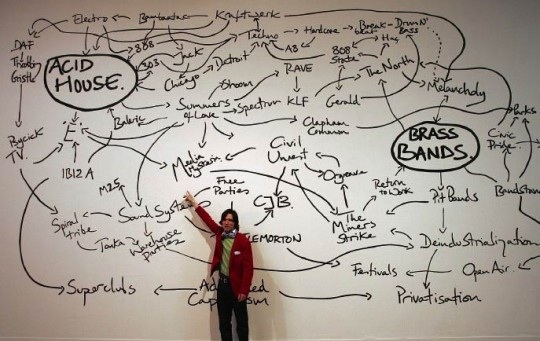 Electro
Kraftwerk
DAF
Throbbing
Gristle
808
303
Jack
Techno
Hardcore
Break-
beat
Drum N'
Bass
ACID
HOUSE.
Chicago
Detroit
A8
808
State
Hac
The North
Melancholy
RAVE
Shoom
Summers
of Love
Spectrum
KLF
Gerald
Clapham
Common
Balearic
"E"
Psychick
TV.
IBIZA
Media
Hysteria
Civil
Unrest
Orgreave
BRASS
BANDS.
Civic
Pride
Parks
M25
Free
Parties
CJB.
Return
to Work
Pit Bands
Bandstand
Spiral
tribe
Sound Systems
The
Miners
Strike
Tonka
Warehouse
Parties
Deindustrialization
Festivals
Open Air.
Superclubs
Advanced
Capitalism
Privatisation